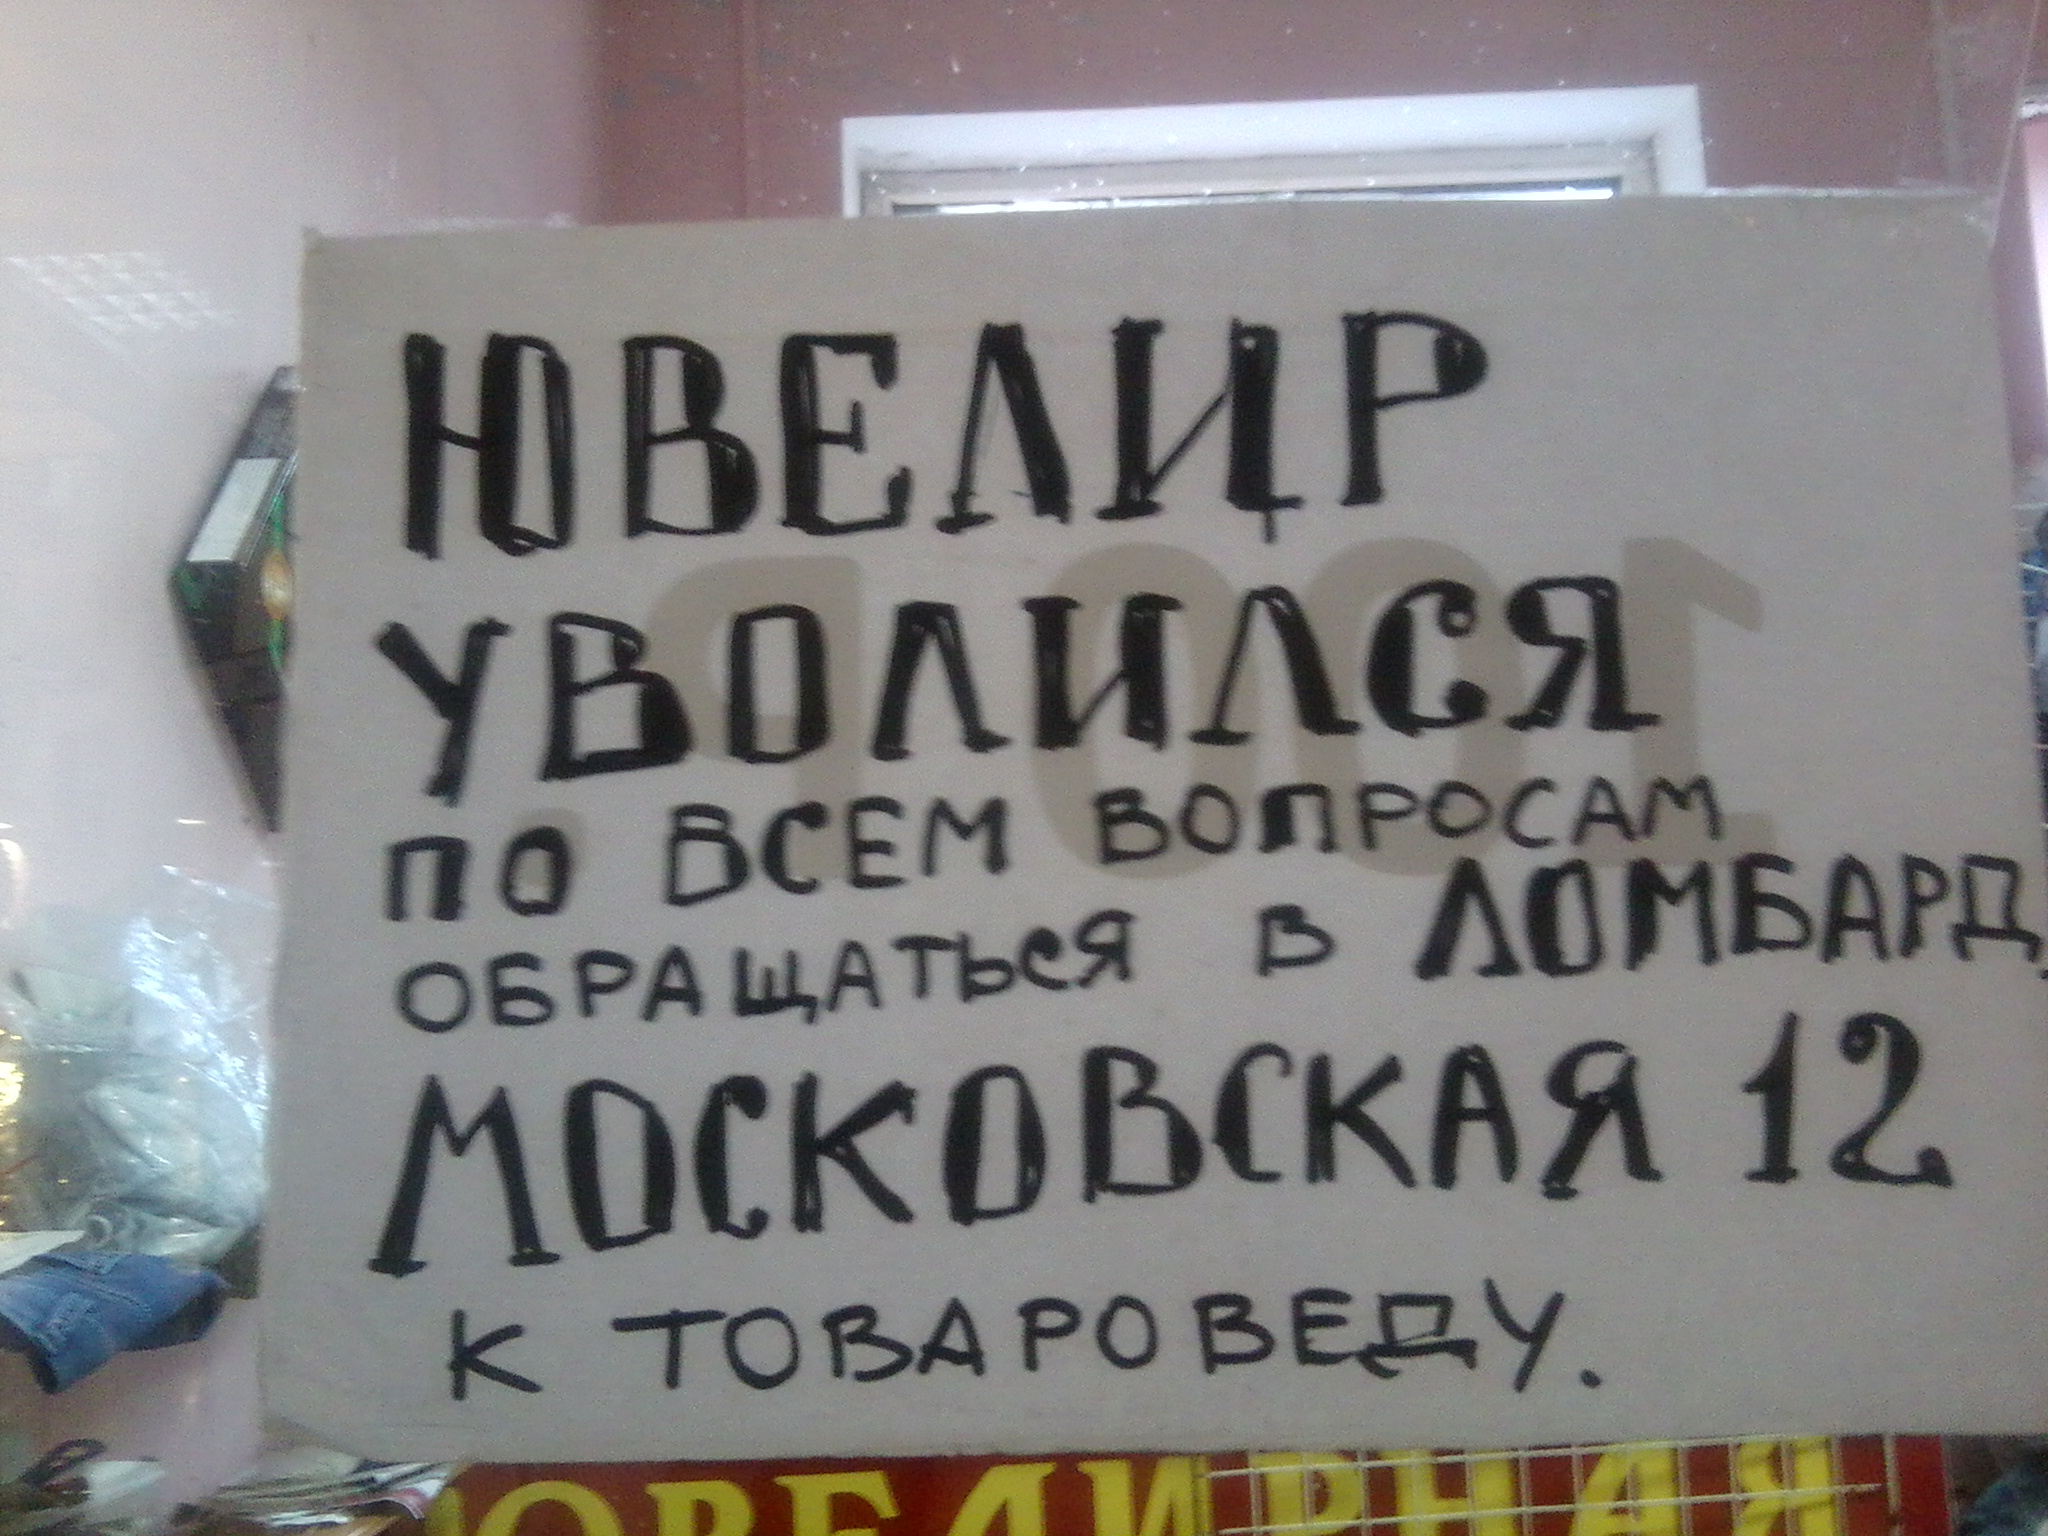 ЮВЕЛИР
УВОЛИЛСЯ
ПО ВСЕМ ВОПРОСАМ
ОБРАЩАТЬСЯ В ЛОМБАРД,
МОСКОВСКАЯ 12
К ТОВАРОВЕДУ.
100 Р.
ЮВЕЛИРНАЯ